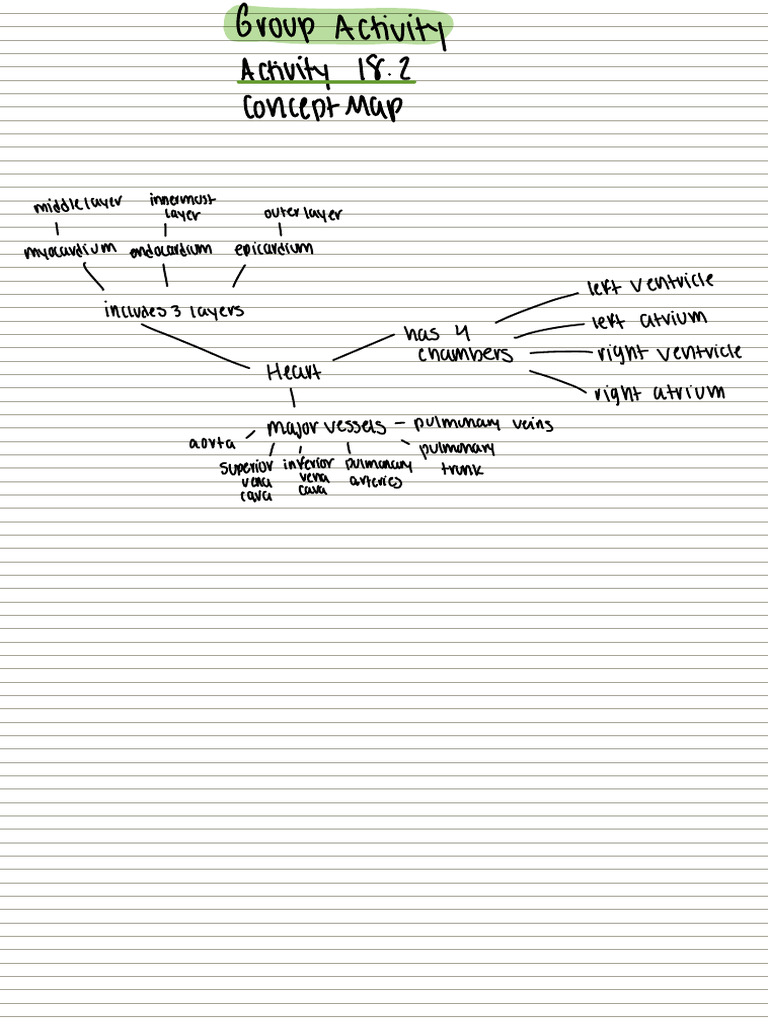 Group Activity
Activity 18.2
Concept Map
middle layer
innermost
layer
outer layer
myocardium
endocardium
epicardium
includes 3 layers
has 4
chambers
left ventricle
left atrium
right ventricle
right atrium
Heart
major vessels
pulmonary veins
aorta
superior
vena
cava
inferior
vena
cava
pulmonary
arteries
pulmonary
trunk